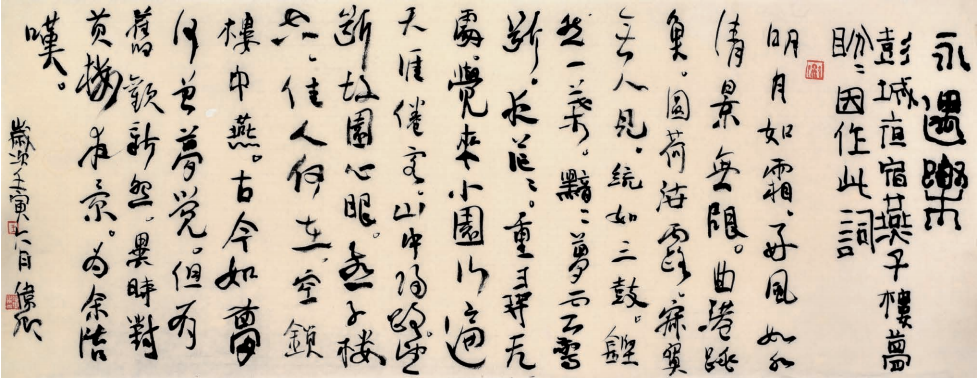 永遇樂
彭城夜宿燕子樓夢
盼〻因作此詞
明月如霜。好風如水
清景無限。曲港跳
魚。圓荷瀉露。寂寞
無人見。紞如三鼓。鏗
然一葉。黯〻夢雲驚
斷。夜茫〻。重尋无
處。覺來小園行遍
天涯倦客。山中歸路。望
斷故園心眼。燕子樓
空。佳人何在。空鎖
樓中燕。古今如夢
何曾夢覺。但有
舊歡新怨。異時對
黃樓夜景。為余浩
嘆。
歲次壬寅 月 偉